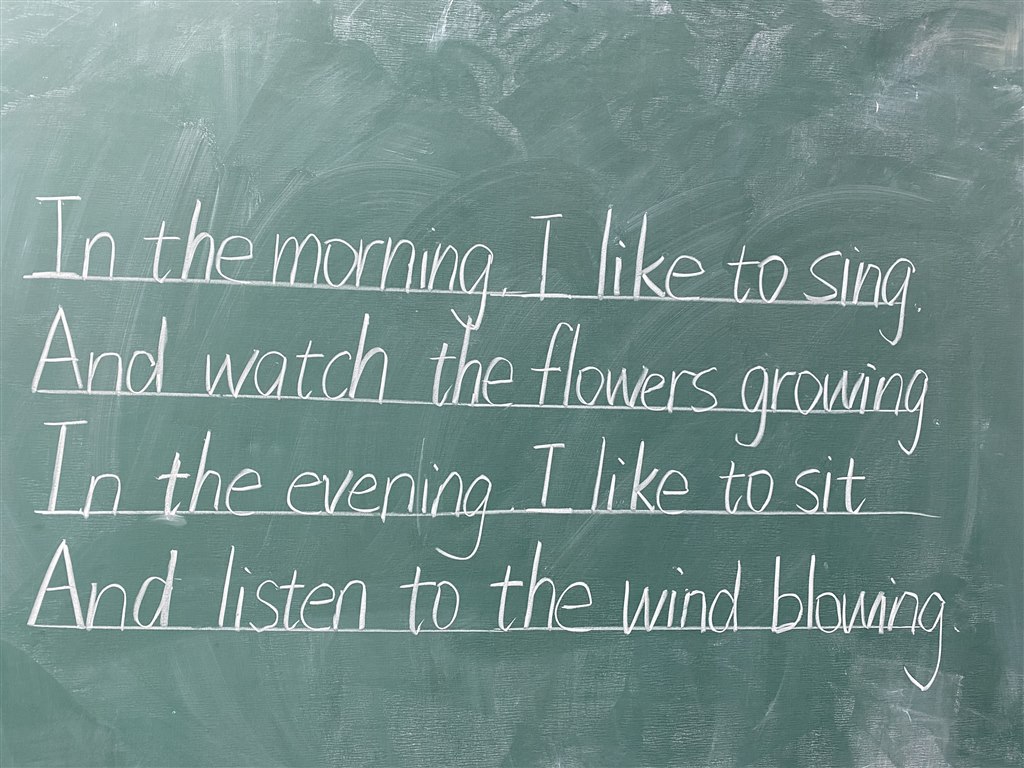 In the morning. I like to sing.
And watch the flowers growing
In the evening. I like to sit
And listen to the wind blowing.